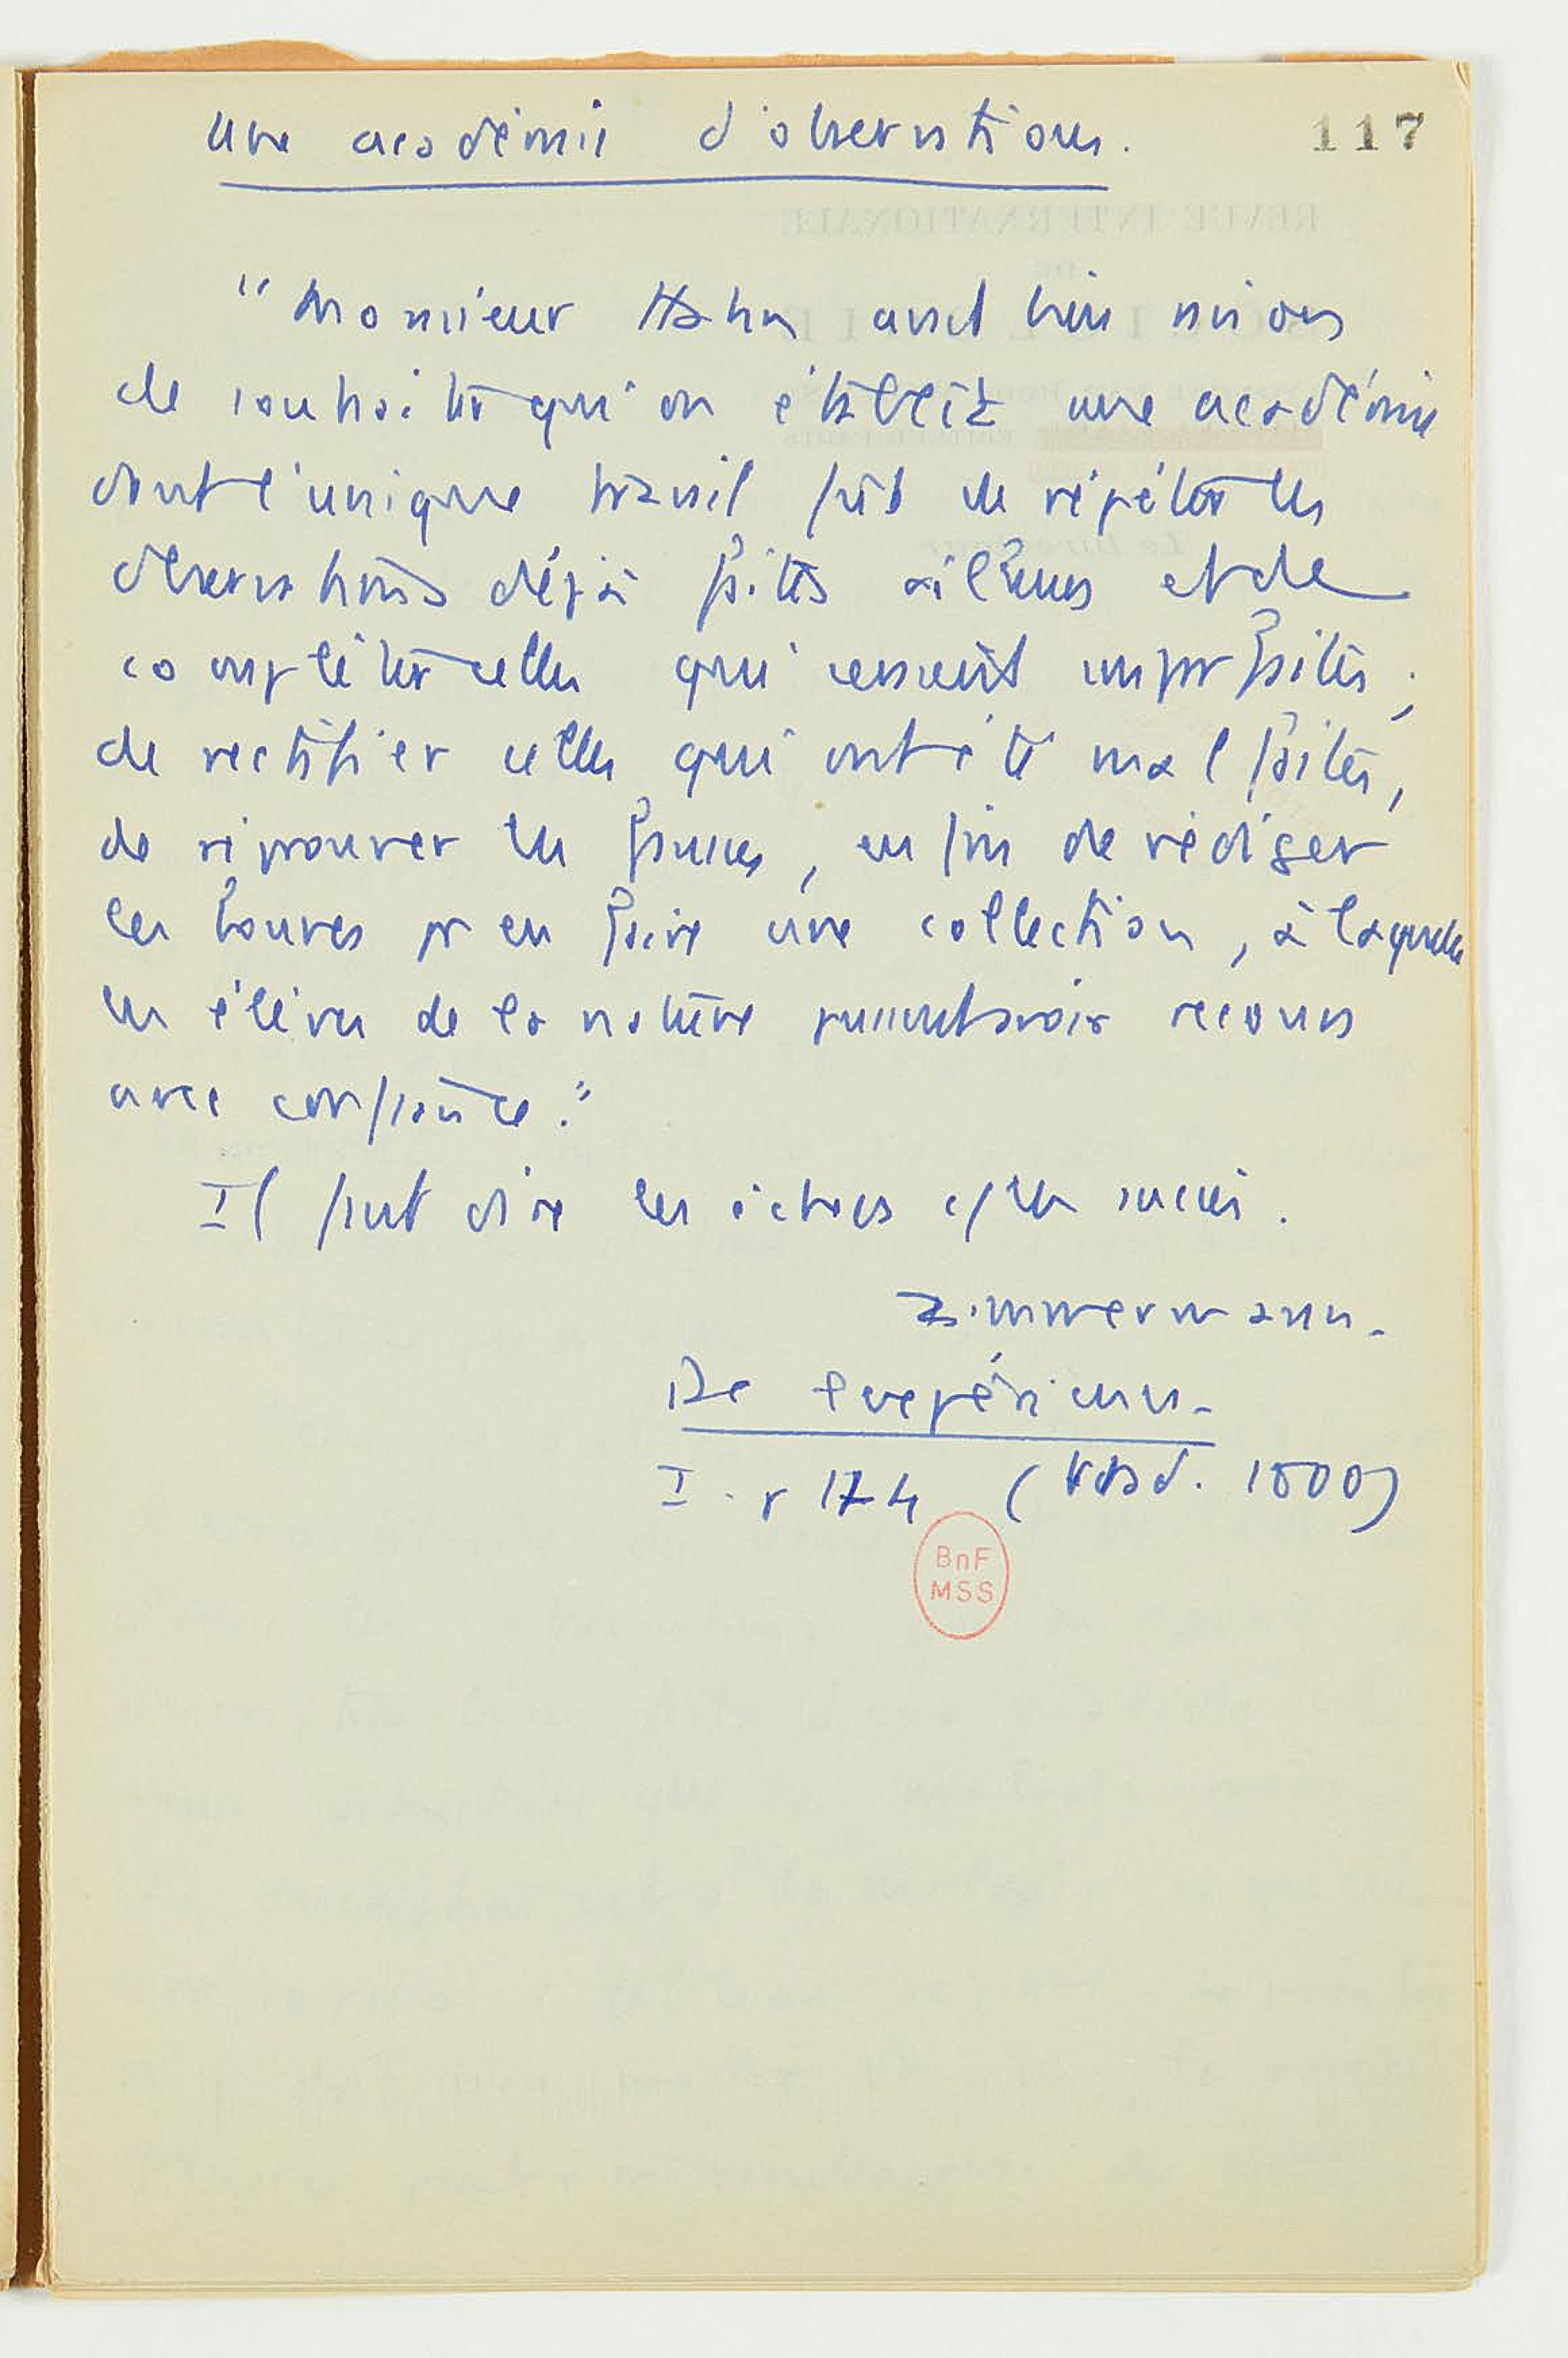 Une académie d'observations.
117
"Monsieur Hahn avait bien raison
de souhaiter qu'on établît une académie
dont l'unique travail fût de répéter les
observations déjà faites ailleurs et de
compléter celles qui seraient imparfaites ;
de rectifier celles qui ont été mal faites,
de réprouver les fausses, enfin de rédiger
les bonnes pr en faire une collection, à laquelle
les élèves de la nature pussent avoir recours
avec confiance."
Il faut dire les échecs c/ les succès.
Zimmermann.
De l'expérience.
I. p 174 ( trad. 1800)
BnF
MSS